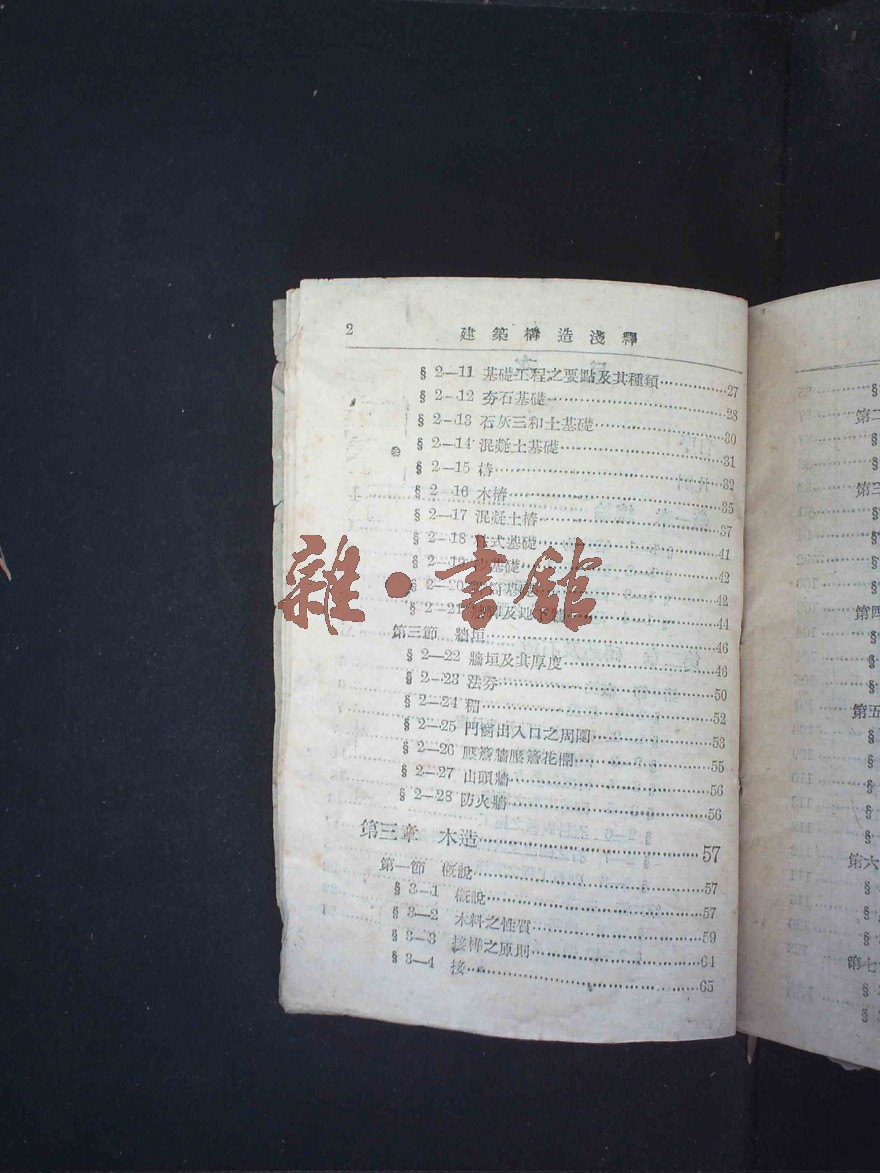 2
建築構造淺釋
§ 2—11 基礎工程之要點及其種類 27
§ 2—12 夯石基礎 28
§ 2—13 石灰三和土基礎 30
§ 2—14 混凝土基礎 31
§ 2—15 樁 32
§ 2—16 木樁 35
§ 2—17 混凝土樁 37
§ 2—18 式基礎 41
§ 2—19 基礎 42
§ 2—20 42
§ 2—21 及地 44
第三節 牆垣 46
§ 2—22 牆垣及其厚度 46
§ 2—23 法券 50
§ 2—24 52
§ 2—25 門窗出入口之周圍 53
§ 2—26 壓簷牆壓簷花欄 55
§ 2—27 山頭牆 56
§ 2—28 防火牆 56
第三章 木造 57
第一節 概說 57
§ 3—1 概說 57
§ 3—2 木料之性質 59
§ 3—3 接榫之原則 64
§ 3—4 接 65
雜·書館
第二
第三
第四
第五
第六
第七